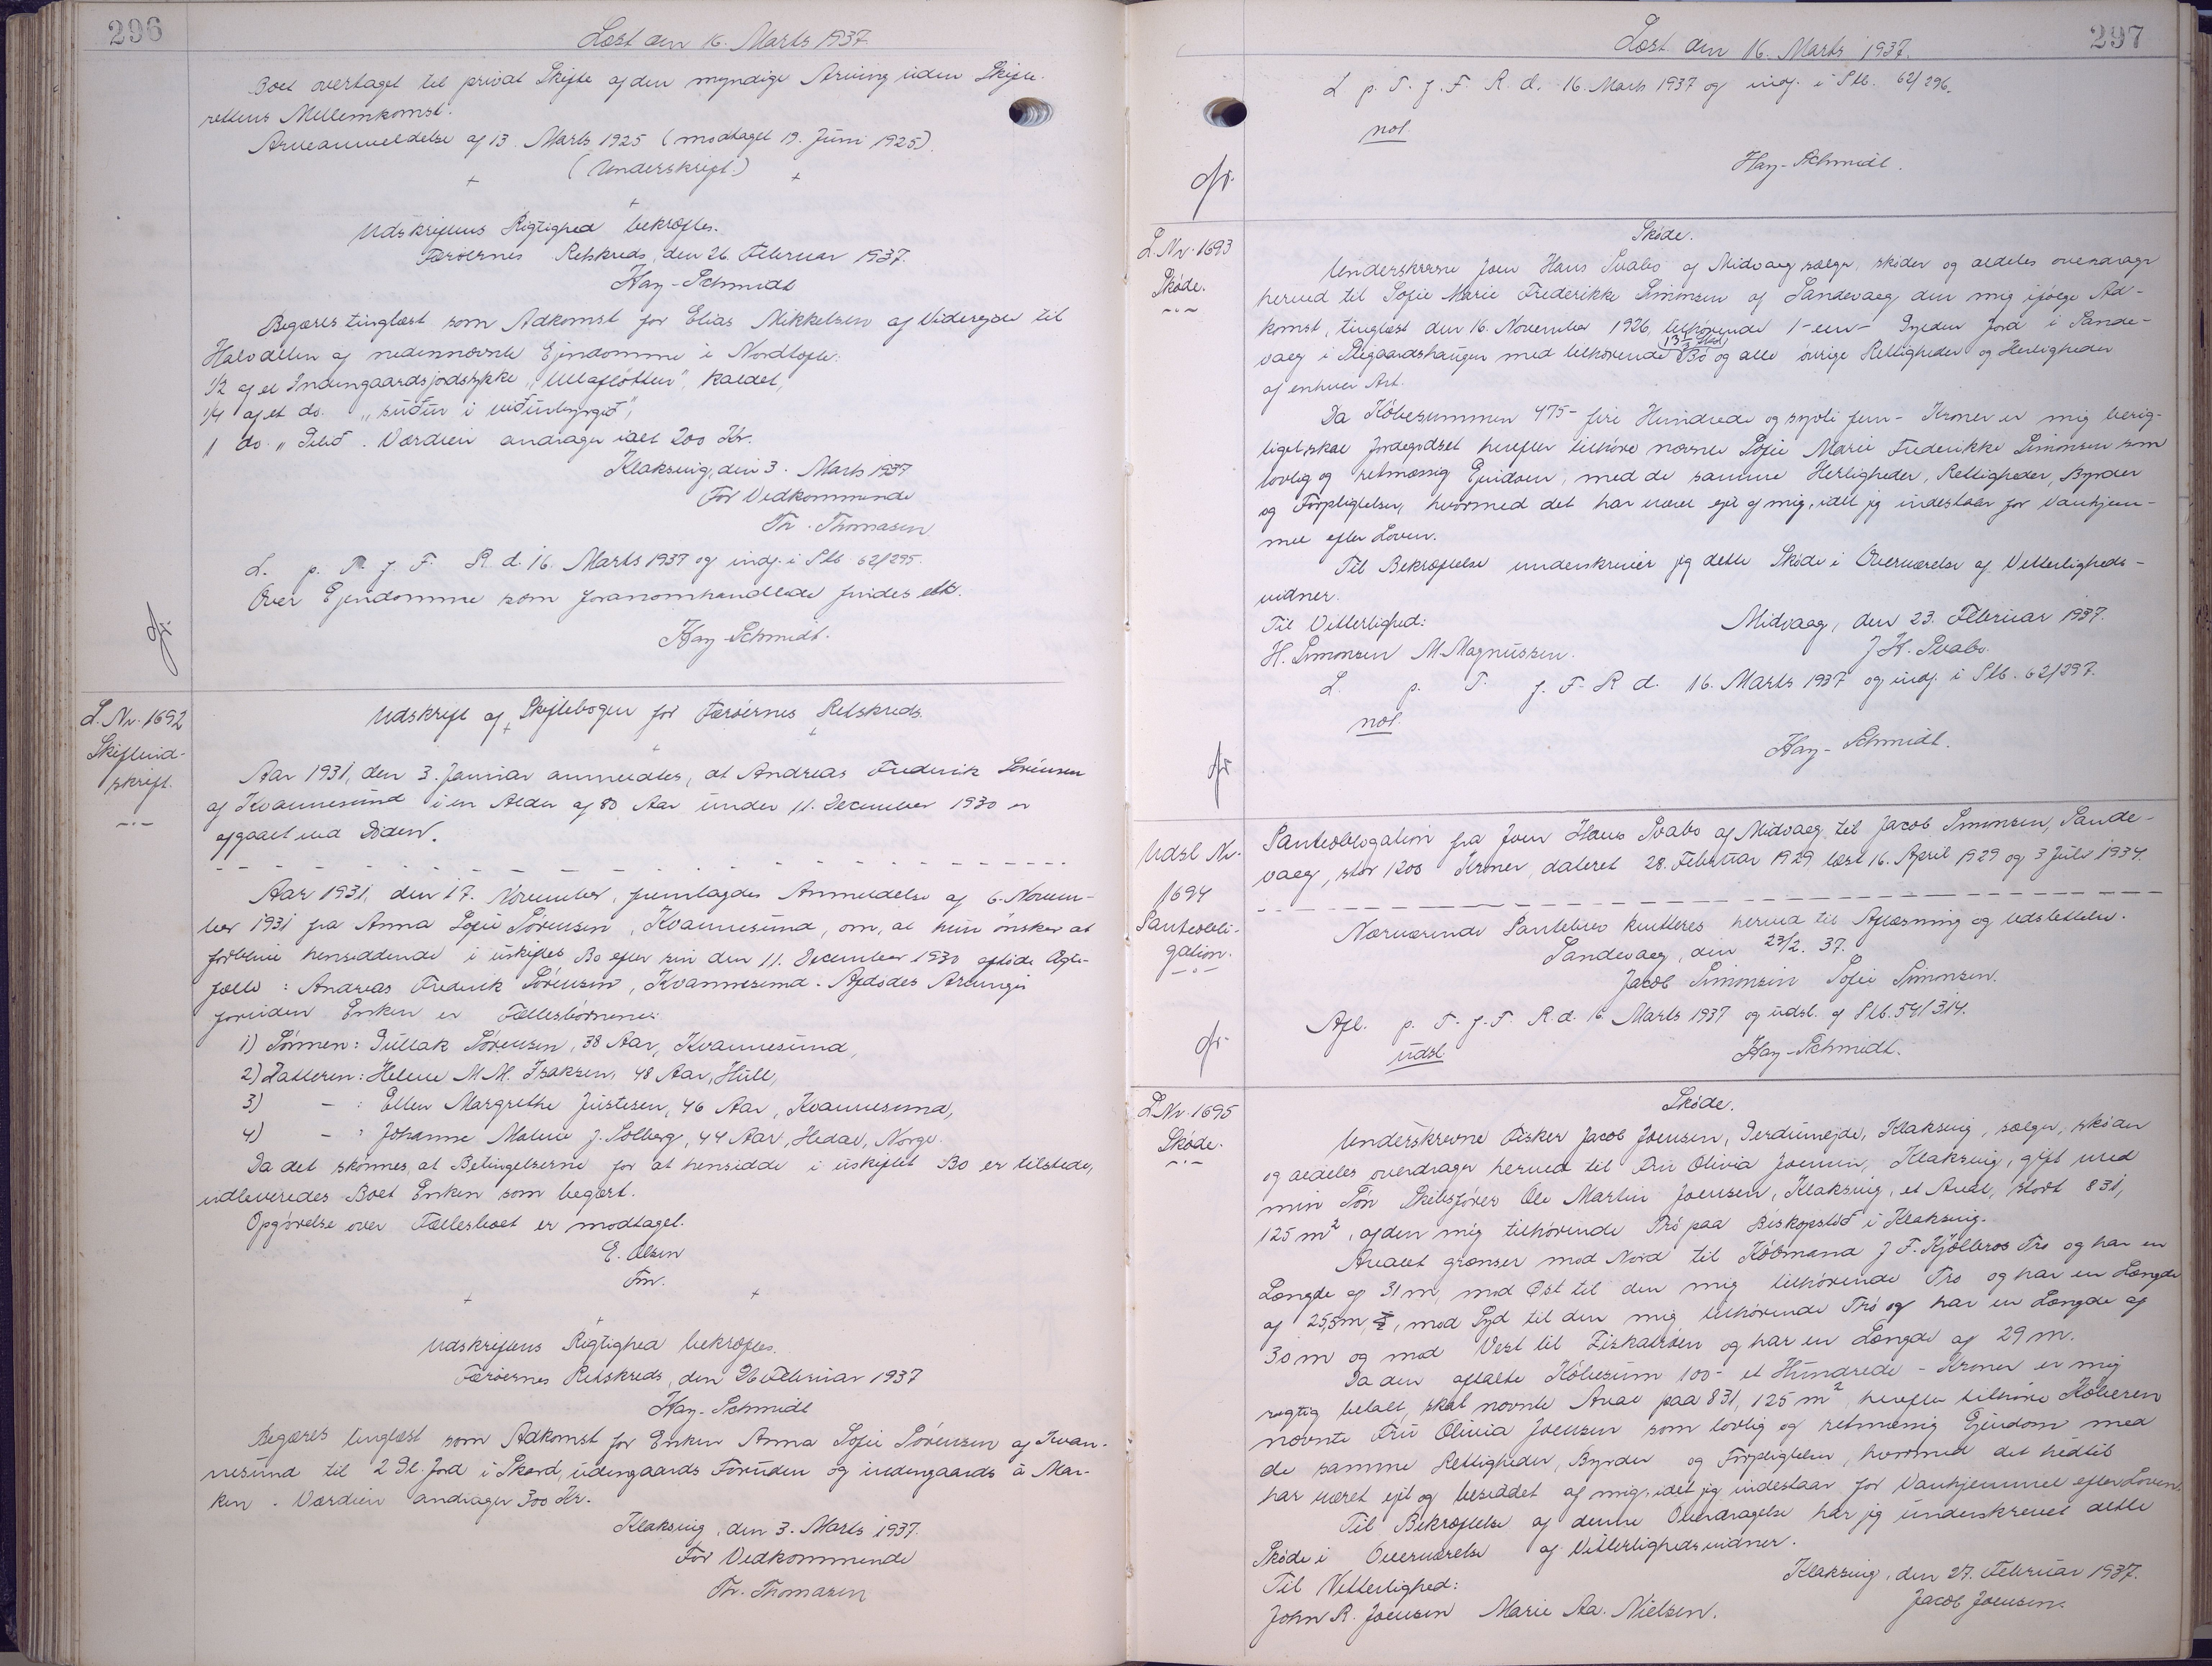 296
Læst den 16. Marts 1937
Boet overtaget til privat Skifte af den myndige Arving uden Skifte-
rettens Mellemkomst.
Arveanmeldelse af 13. Marts 1925 (modtaget 19. Juni 1925).
(Underskrift.)
Udskriftens Rigtighed bekræftes.
Færøernes Retskreds, den 26. Februar 1937.
Hay-Schmidt
Begæres tinglæst som Adkomst for Elias Mikkelsen af Viderejde til
Halvdelen af nedennævnte Ejendomme i Nordtofte:
1/2 af et Indengaardsjordstykke "Ullafløttur" kaldet,
1/4 af et do. "suður i viðurbyrgið",
1 do. " . Værdien andrager ialt 200 Kr.
Klaksvig, den 3. Marts 1937
For Vedkommende
Th. Thomasen
L. p. T. f. F. R. d. 16. Marts 1937 og indf. i Skb 62/295.
Over Ejendomme som foranomhandlede findes ikke.
Hay-Schmidt.
L. Nr. 1692
Skifteud-
skrift.
Udskrift af Skiftebogen for Færøernes Retskreds.
Aar 1931, den 3. Januar anmeldtes, at Andreas Frederik Sørensen
af Kvannesund i en Alder af 80 Aar under 11. December 1930 er
afgaaet ved Døden.
Aar 1931, den 17. November, fremlagdes Anmeldelse af 6. Novem-
ber 1931 fra Anna Sofie Sørensen, Kvannesund, om, at hun ønsker at
forblive hensiddende i uskiftet Bo efter sin den 11. December 1930 afdøde Ægte-
fælle: Andreas Frederik Sørensen, Kvannesund. Afdødes Arvinger
foruden Enken er Fællesbørnene:
1) Sønnen: Dullak Sørensen, 38 Aar, Kvannesund,
2) Datteren: Helene M. M. Isaksen, 48 Aar, Hull,
3) - : Ellen Margrethe Justesen, 46 Aar, Kvannesund,
4) - : Johanne Malene J. Solberg, 44 Aar, Hedal, Norge.
Da det skønnes, at Betingelserne for at hensidde i uskiftet Bo er tilstede,
udleveredes Boet Enken som begært.
Opgørelse over Fællesboet er modtaget.
E. Olsen
Fm.
Udskriftens Rigtighed bekræftes.
Færøernes Retskreds, den 26 Februar 1937
Hay-Schmidt
Begæres tinglæst som Adkomst for Enken Anna Sofie Sørensen af Kvan-
nesund til 2 Gl. Jord i Skard, udengaards Foruden og indengaards á Mar-
ken. Værdien andrager 300 Kr.
Klaksvig, den 3. Marts 1937.
For Vedkommende
Th. Thomasen
297
Læst den 16. Marts 1937.
L. p. T. f. F. R. d. 16. Marts 1937 og indf. i Skb. 62/296.
not.
Hay-Schmidt.
L. Nr. 1693
Skøde.
Skøde.
Underskrevne Joen Hans Svabo af Midvaag sælger, skøder og aldeles overdrager
herved til Sofie Marie Frederikke Simonsen af Sandevaag den mig ifølge Ad-
komst, tinglæst den 16. November 1926, tilhørende 1-een- Gylden Jord i Sande-
vaag i Stigaardshaugen med tilhørende Bø og alle øvrige Rettigheder og Herligheder
af enhver Art.
Da Købesummen 475- fire Hundrede og syvti fem- Kroner er mig berig-
tiget, skal Jordegodset herefter tilhøre nævnte Sofie Marie Frederikke Simonsen som
lovlig og retmæssig Ejendom, med de samme Herligheder, Rettigheder, Byrder
og Forpligtelser, hvormed det har været ejet af mig, idet jeg indestaar for Vanhjem-
mel efter Loven.
Til Bekræftelse underskriver jeg dette Skøde i Overværelse af Vetterligheds-
vidner.
Til Vitterlighed: Midvaag, den 23. Februar 1937.
H. Simonsen M. Magnussen. J. H. Svabo.
L. p. T. f. F. R. d. 16. Marts 1937 og indf. i Skb. 62/297.
not.
Hay-Schmidt.
Udsl. Nr.
1694
Panteobli-
gation.
Panteobligation fra Joen Hans Svabo af Midvaag til Jacob Simonsen, Sande-
vaag, stor 1200 Kroner, dateret 28. Februar 1929, læst 16. April 1929 og 3 Juli 1934.
Nærværende Pantebrev kvitteres herved til Aflæsning og Udslettelse.
Sandevaag, den 23/2. 37.
Jacob Simonsen Sofie Simonsen.
Afl. p. T. f. F. R. d. 16. Marts 1937 og udsl. af Skb. 54/314.
udsl.
Hay-Schmidt.
L. Nr. 1695
Skøde.
Skøde.
Underskrevne Fisker Jacob Joensen, Gerdumejde, Klaksvig, sælger, skøder
og aldeles overdrager herved til Fru Olivia Joensen, Klaksvig, gift med
min Søn Skibsfører Ole Martin Joensen, Klaksvig, et Areal, stort 831,
125 m², af den mig tilhørende Trø paa Biskopstød i Klaksvig.
Arealet grænser mod Nord til Købmand J. F. Kjølbros Trø og har en
Længde af 31 m, mod Øst til den mig tilhørende Trø og har en Længde
af 25,5 m, mod Syd til den mig tilhørende Trø og har en Længde af
30 m og mod Vest til Fiskatrøen og har en Længde af 29 m.
Da den aftalte Købesum 100- et Hundrede - Kroner er mig
rigtig betalt, skal nævnte Areal paa 831, 125 m² herefter tilhøre Køberen
nævnte Fru Olivia Joensen som lovlig og retmæssig Ejendom med
de samme Rettigheder, Byrder og Forpligtelser, hvormed det hidtil
har været ejet og besiddet af mig, idet jeg indestaar for Vanhjemmel efter Loven.
Til Bekræftelse af denne Overdragelse har jeg underskrevet dette
Skøde i Overværelse af Vitterlighedsvidner.
Klaksvig, den 27. Februar 1937.
Til Vitterlighed: Jacob Joensen.
John R. Joensen Marie Aa. Nielsen.